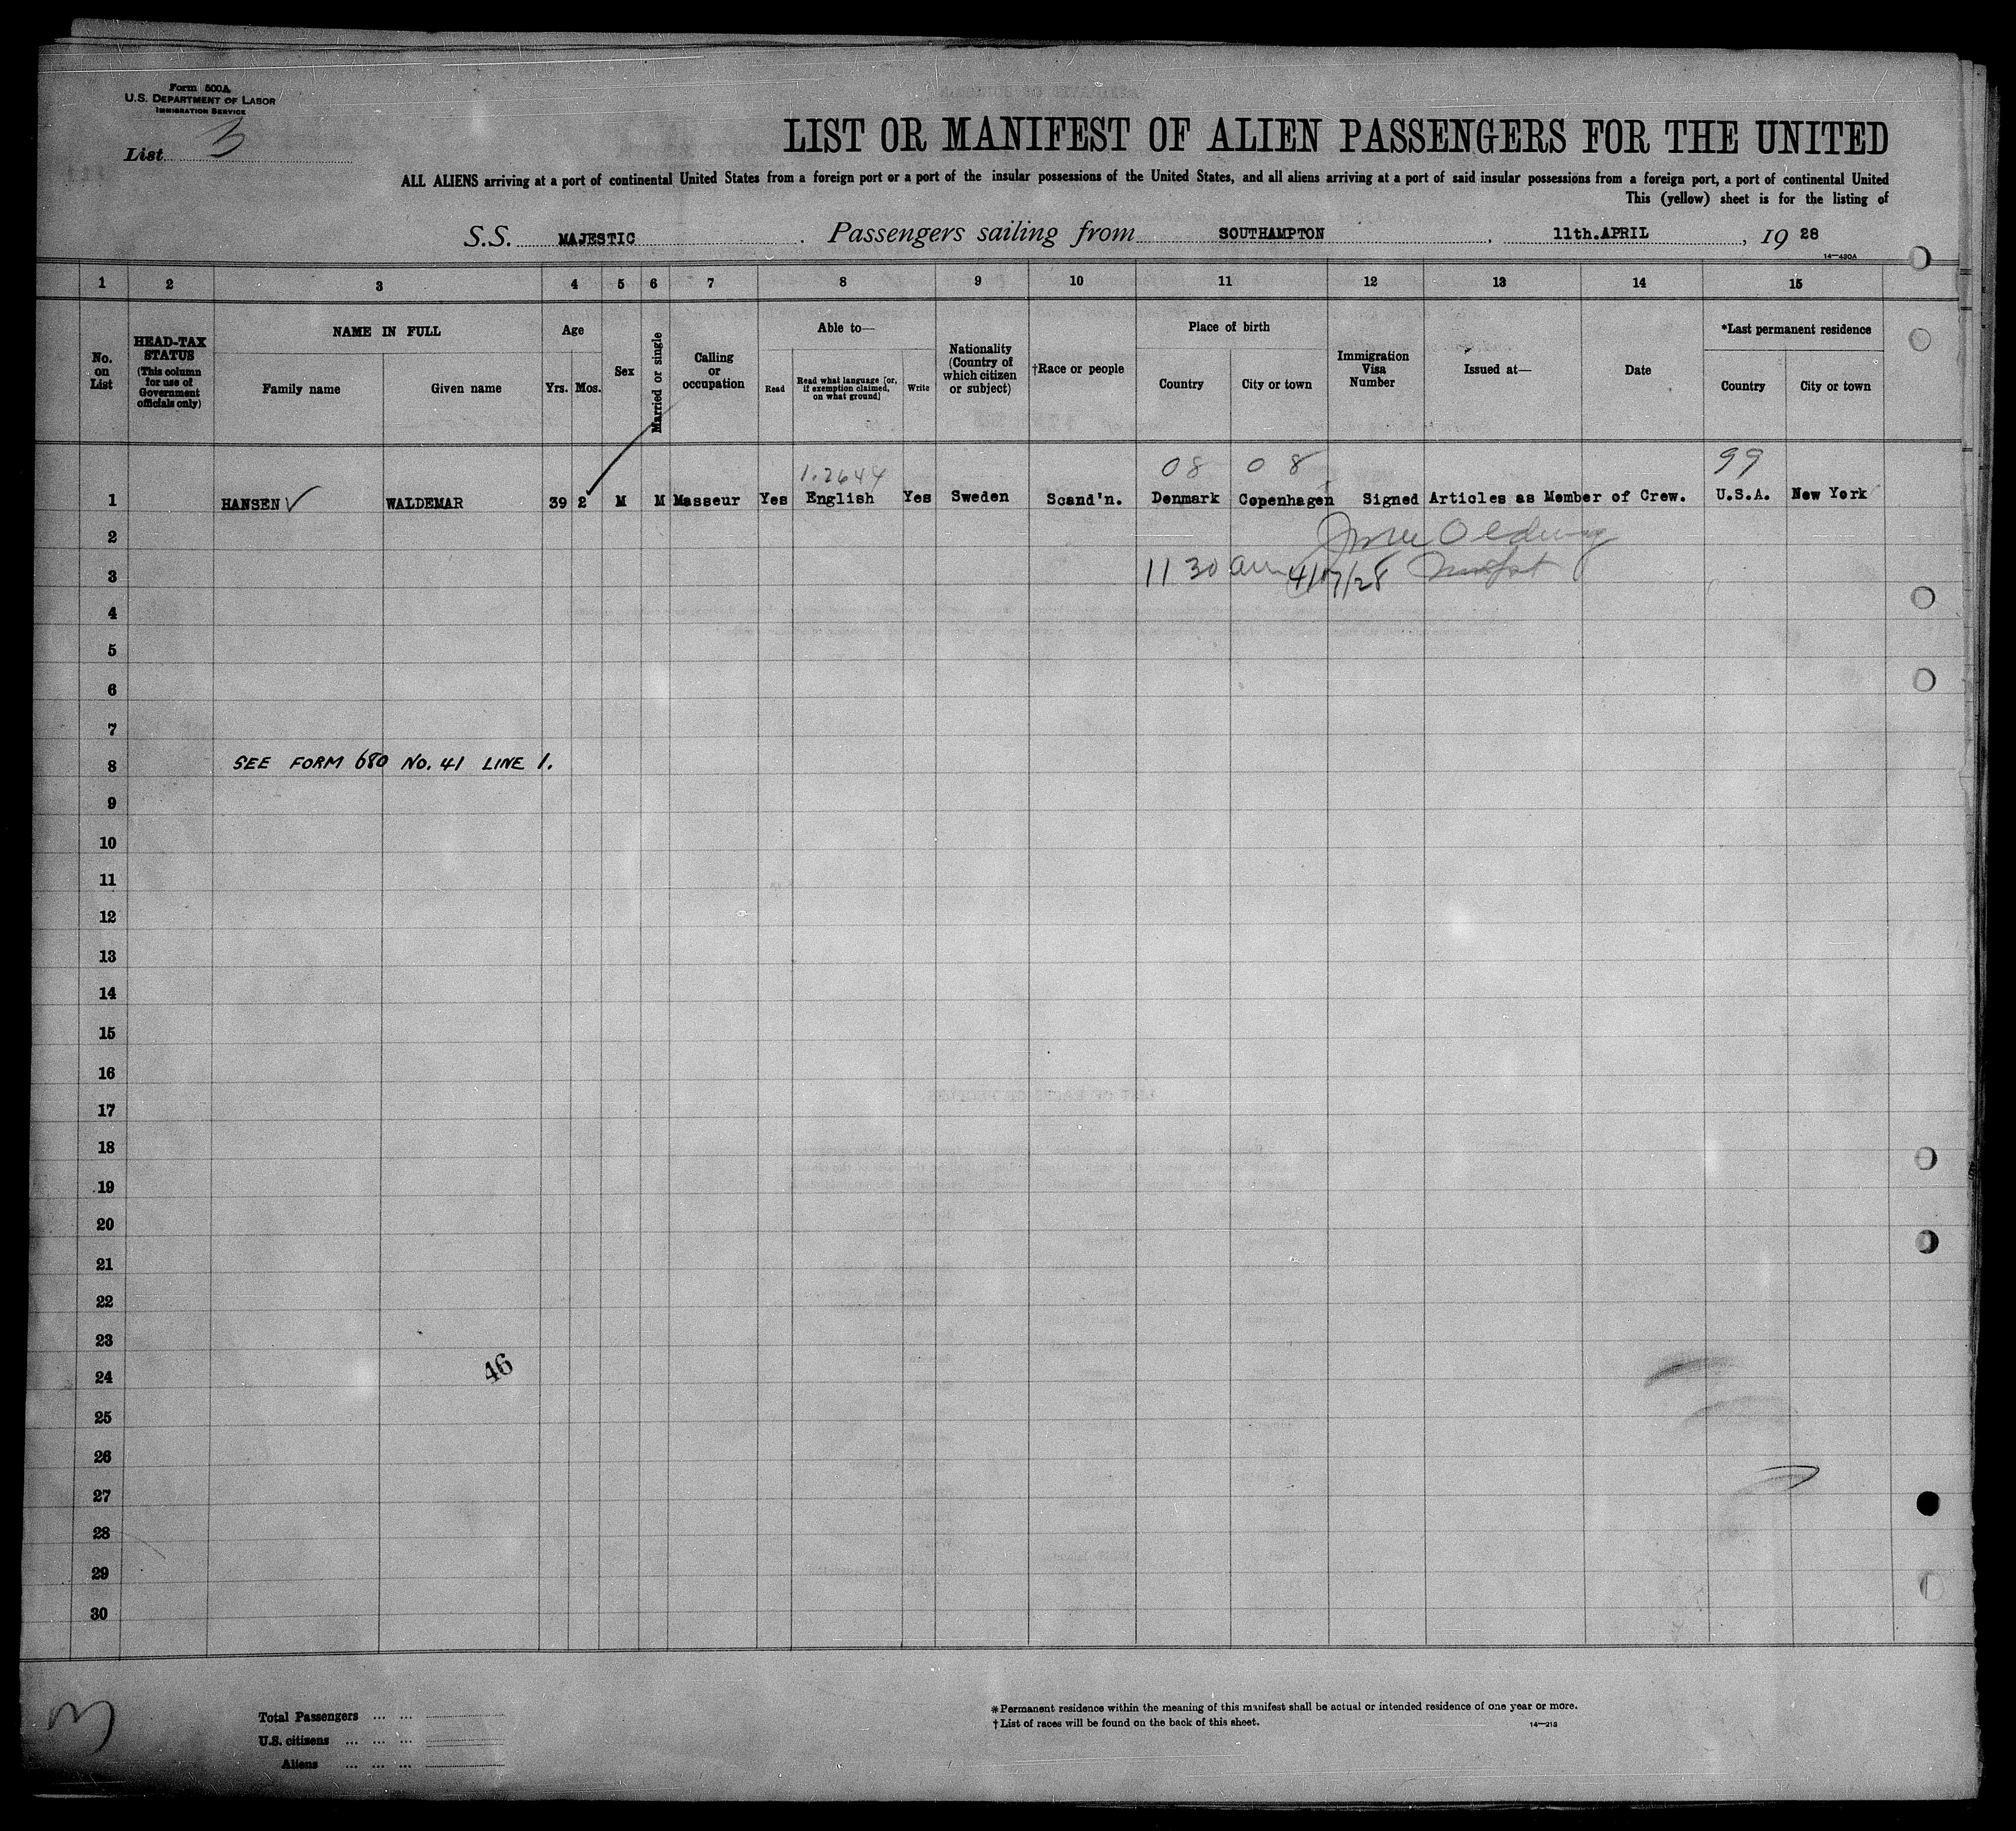 Form 500A
U.S. DEPARTMENT OF LABOR
IMMIGRATION SERVICE
List 3
LIST OR MANIFEST OF ALIEN PASSENGERS FOR THE UNITED
ALL ALIENS arriving at a port of continental United States from a foreign port or a port of the insular possessions of the United States, and all aliens arriving at a port of said insular possessions from a foreign port, a port of continental United
This (yellow) sheet is for the listing of
S.S. MAJESTIC. Passengers sailing from SOUTHAMPTON, 11th.APRIL, 19 28
14—430A
1 2 3 4 5 6 7 8 9 10 11 12 13 14 15
No. on List
HEAD-TAX STATUS (This column for use of Government officials only)
NAME IN FULL
Family name Given name
Age
Yrs. Mos.
Sex
Married or single
Calling or occupation
Able to—
Read
Read what language [or, if exemption claimed, on what ground]
Write
Nationality (Country of which citizen or subject)
†Race or people
Place of birth
Country City or town
Immigration Visa Number
Issued at—
Date
*Last permanent residence
Country City or town
1.2644 08 08 99
1 HANSEN WALDEMAR 39 2 M M Masseur Yes English Yes Sweden Scand'n. Denmark Copenhagen Signed Articles as Member of Crew. U.S.A. New York
2
3 11 30 am 4/17/28
4
5
6
7
8 SEE FORM 680 No. 41 LINE 1.
9
10
11
12
13
14
15
16
17
18
19
20
21
22
23
24 46
25
26
27
28
29
30
3
Total Passengers ... ...
U.S. citizens ... ... ...
Aliens ... ... ...
*Permanent residence within the meaning of this manifest shall be actual or intended residence of one year or more.
†List of races will be found on the back of this sheet.
14—215